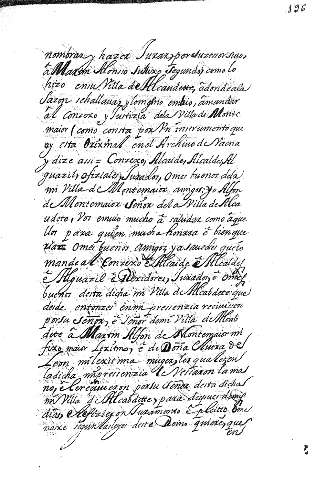 196
nombrar, y hazer Jurar, por sucesor suio,
a Martin Alonso su hixo Segundo, como lo
hizo en su Villa de Alcaudete, adonde a la
sazon se hallaua, y lo mismo embio, a mandar
al Conzexo, y Justizia dela Villa de Monte
maior (como consta por Vn instrumento que
oy esta orixinal en el Archiuo de Vaena
y dize asi: Conzexo, Alcaide, Alcaldes, Al
guazil, ofiziales, Jurados, omes buenos dela
mi Villa de Montemaior, amigos; yo Alfon
de Montemaior Señor dela Villa de Alca
udete, Vos enuio mucho a saludar como aque
llos para quien mucha honrra e bien que
rria. Omes buenos, Amigos, ya sauedes que Yo
mande al Conzexo e Alcaide e Alcaldes
e Alguazil e Rexidores, Jurados, e Omes
buenos desta dicha mi Villa de Alcabdete que
desde entonzes en mi presenzia reciuiesen
por su Señor, e Señor demi Villa de Alcab
dete a Martin Alfon de Montemaior mi
fixo maior Lexitimo, e de Doña Maria de
Leon mi lexitima muger, los quales en
la dicha mi presenzia le vesaron la ma
no, e le reciuieron por su Señor desta dicha
mi Villa de Alcabdete, para despues demis
dias e le fizieron Juramento e pleito ome
naxe segun las leyes deste Reino quieren, que
en